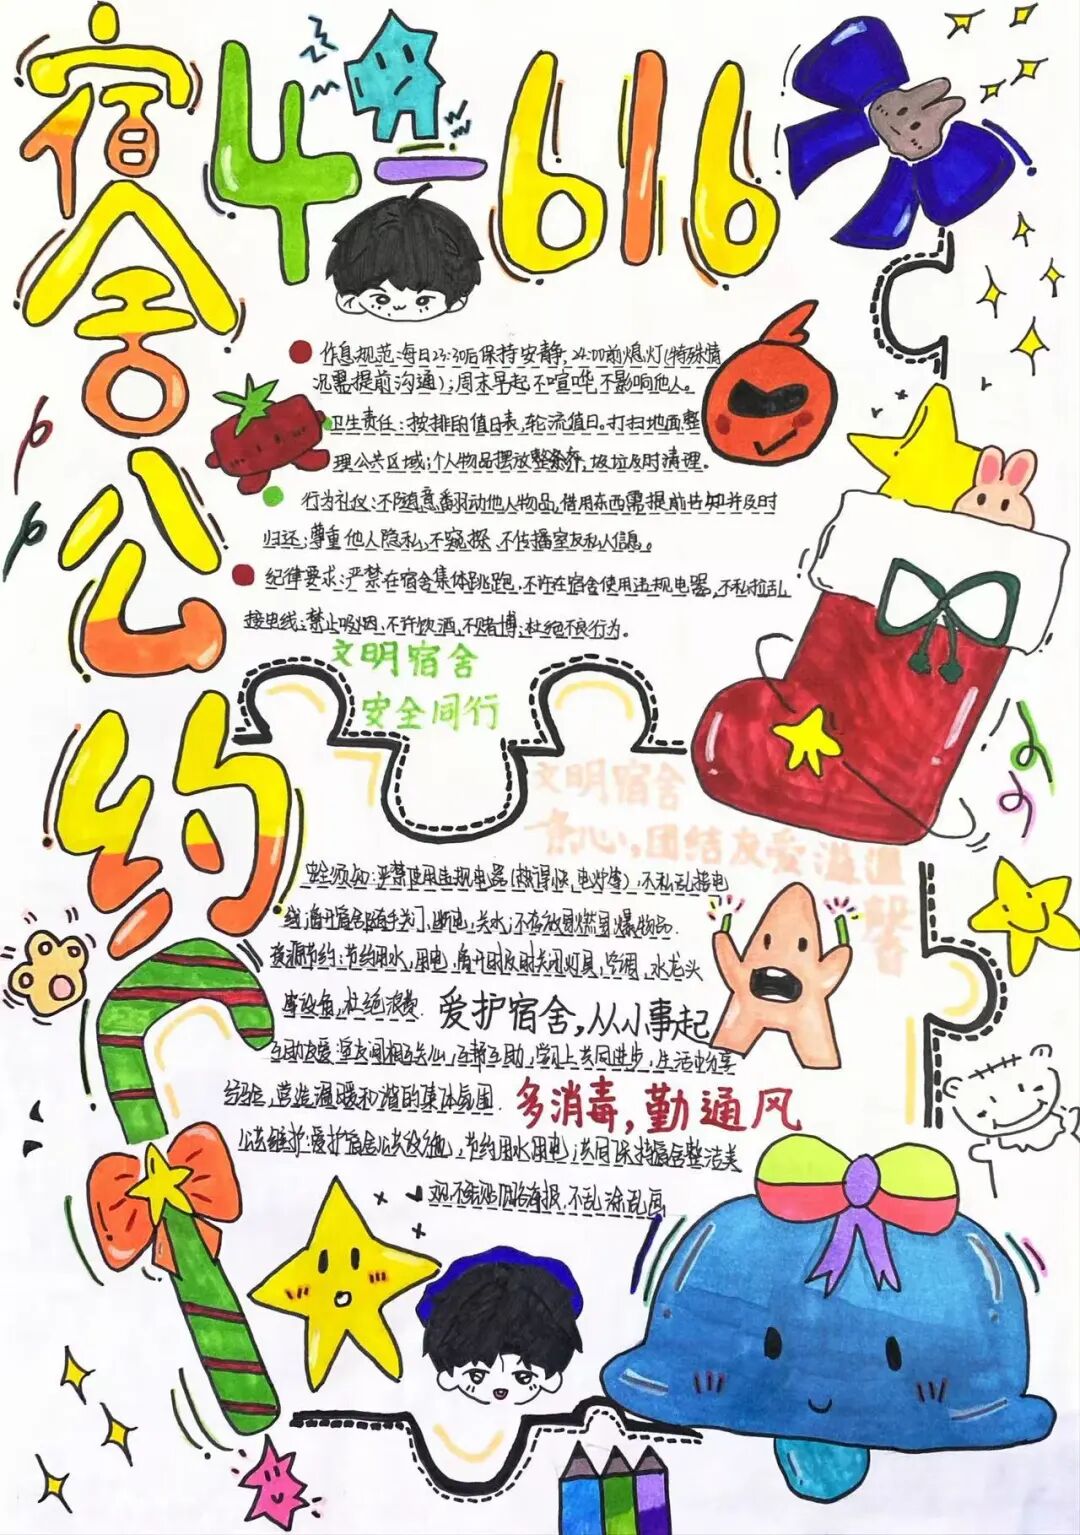 宿舍公约
4-616
作息规范:每日23:30后保持安静,24:00前熄灯(特殊情
况需提前沟通);周末早起不喧哗,不影响他人。
卫生责任:按排的值日表,轮流值日。打扫地面整
理公共区域;个人物品摆放整条齐,垃圾及时清理。
行为礼仪:不随意翻动他人物品,借用东西需提前告知并及时
归还;尊重他人隐私,不窥探,不传播室友私人信息。
纪律要求:严禁在宿舍集体跳跑,不许在宿舍使用违规电器,不私拉乱
接电线;禁止吸烟,不许饮酒,不赌博;杜绝不良行为。
文明宿舍
安全同行
文明宿舍
条心,团结友爱溢温
馨
安全须知:严禁使用违规电器(热得快,电炉等),不私乱接电
线,离开宿舍随手关门,断电,关水;不存放易燃易爆物品.
资源节约:节约用水,用电,离开时及时关闭灯具,空调,水龙头
等设备,杜绝浪费.
爱护宿舍,从小事起
互助友爱:室友间相互关心,互帮互助,学习上共同进步,生活中分享
经验,营造温暖和谐的集体氛围.
多消毒,勤通风
公共维护:爱护宿舍公共设施,节约用水用电,共同保持宿舍整洁美
观,不张贴海报,不乱涂乱画